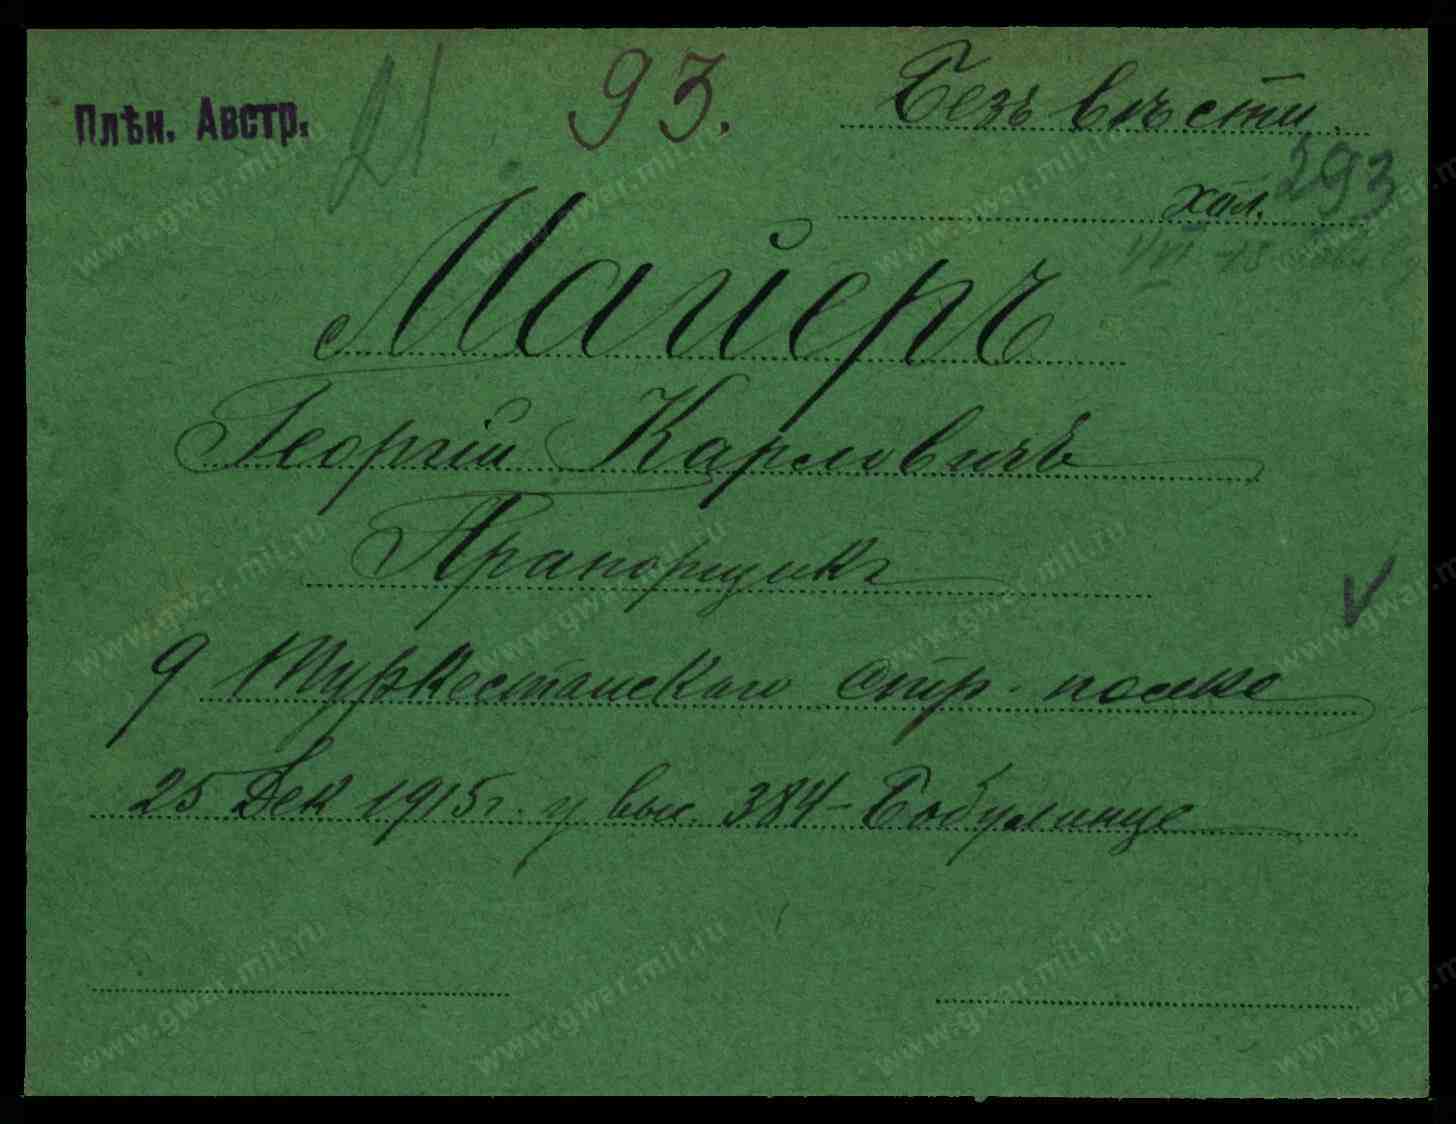 Плѣн. Австр.
21
93.
Безъ вѣсти.
хол.
293
Майеръ
Георгій Карловичъ
Прапорщикъ
9 Туркестанскаго стр. полка
25 Дек 1915 г. у выс. 384 – Бобулинце
www.gwar.mil.ru